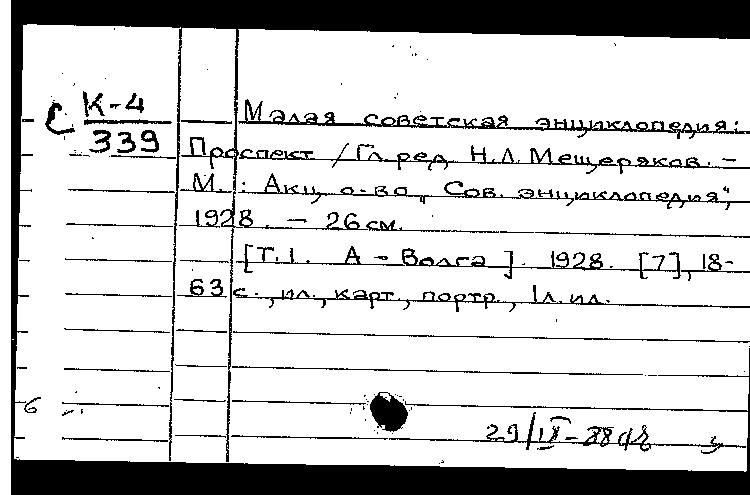 С К-4
339
Малая советская энциклопедия:
Проспект / Гл. ред. Н.Л. Мещеряков. –
М.: Акц. о-во „Сов. энциклопедия",
1928. – 26 см.
[Т.1. А – Волга]. 1928. [7], 18-
63 с., ил., карт., портр., 1 л. ил.
6
29/IX-88